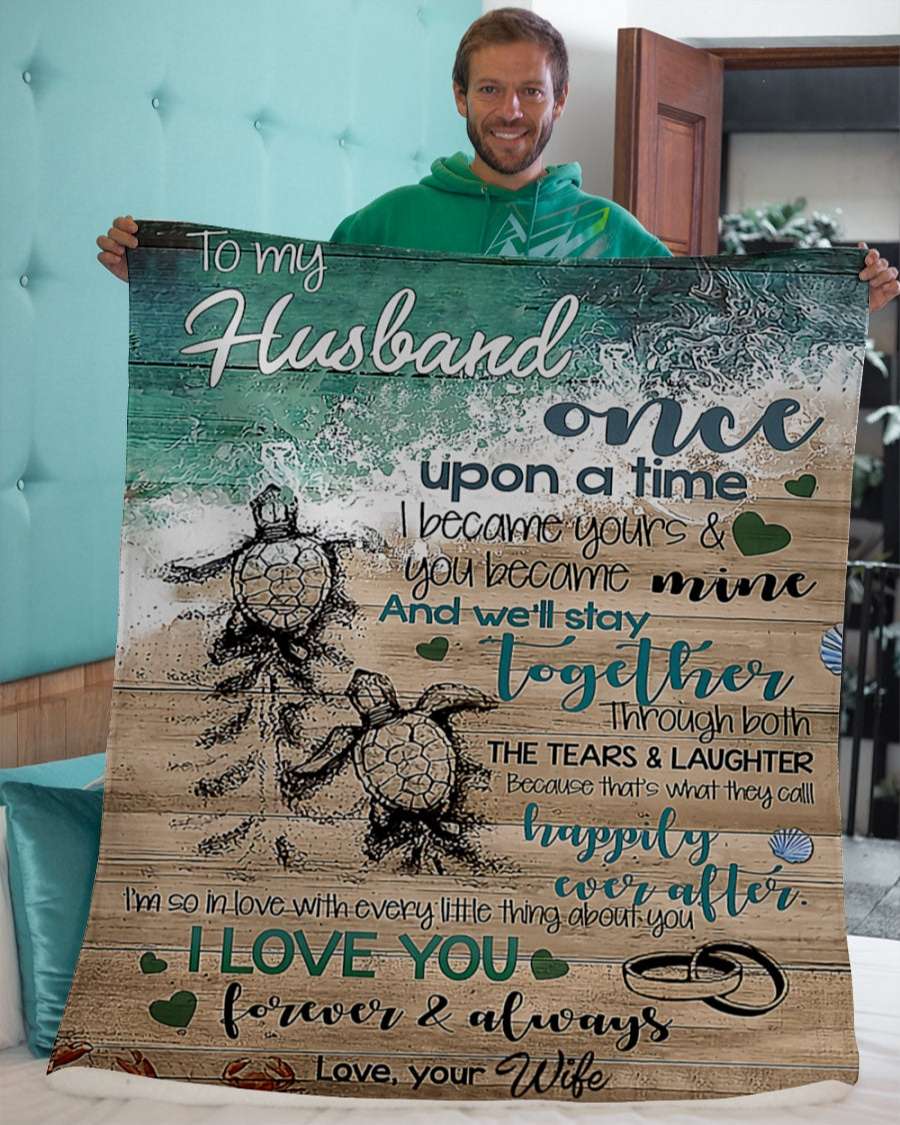 To my
Husband
once
upon a time
I became yours &
you became mine
And we'll stay
together
Through both
THE TEARS & LAUGHTER
Because that's what they calll
happily
ever after.
I'm so in love with every little thing about you
I LOVE YOU
forever & always
Love, your Wife